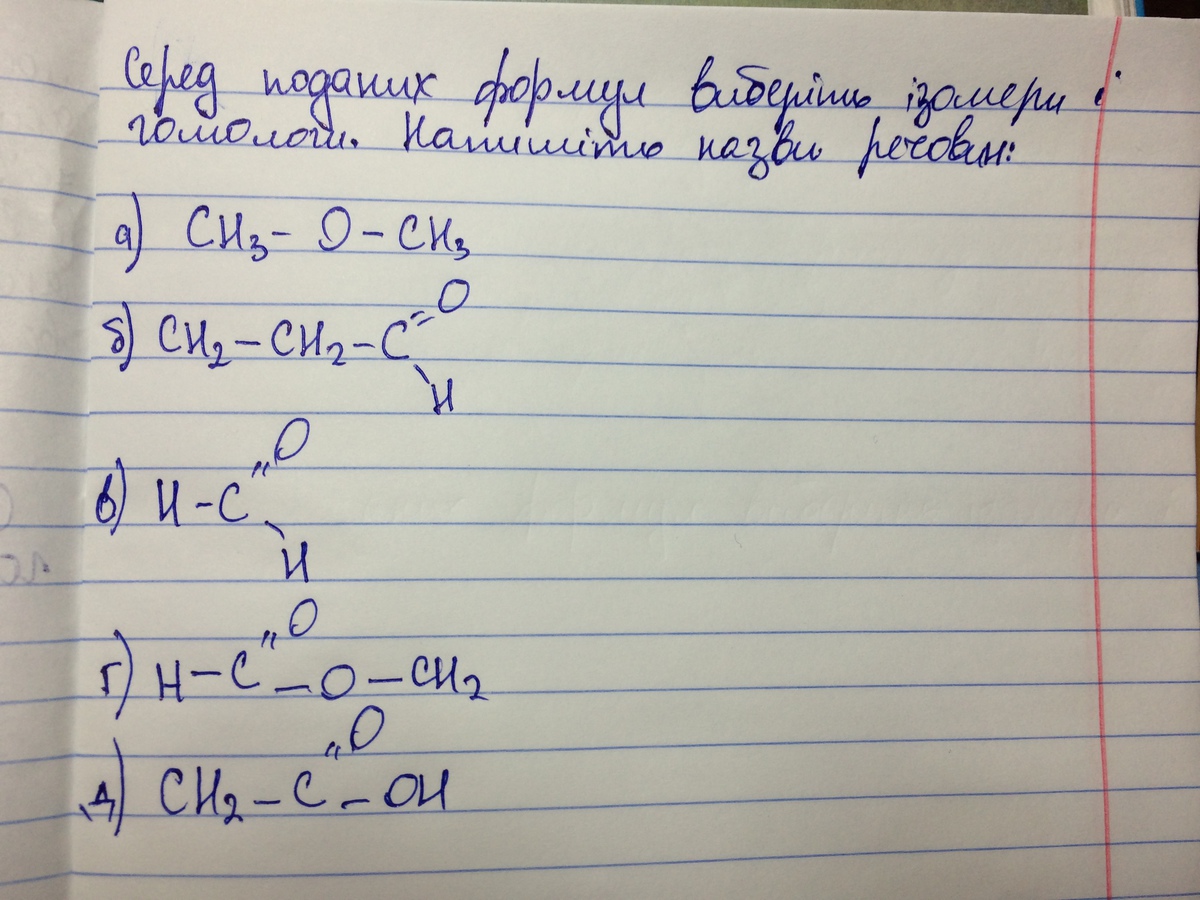 Серед поданих формул виберіть ізомери і
гомологи. Напишіть назви речовин:
а) CH₃ - O - CH₃
O
б) CH₂ - CH₂ - C =
H
O
в) H - C =
H
O
г) H - C = - O - CH₂
O
д) CH₂ - C = - OH